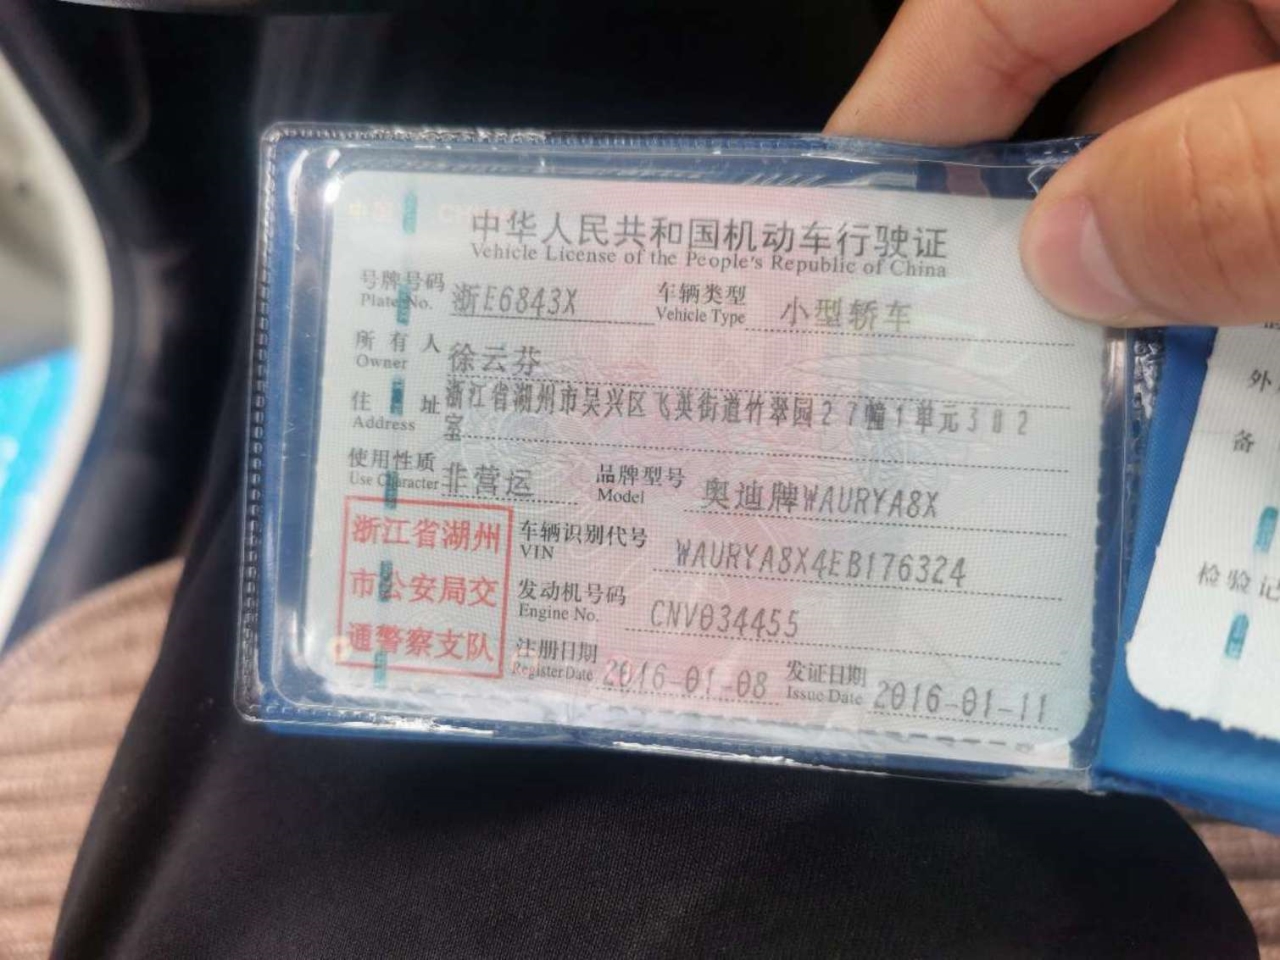 中华人民共和国机动车行驶证
Vehicle License of the People's Republic of China
号牌号码 浙E6843X 车辆类型 小型轿车
Plate No. Vehicle Type
所有人 徐云芬
Owner
住址 浙江省湖州市吴兴区飞英街道竹翠园27幢1单元302
Address 室
使用性质 非营运 品牌型号 奥迪牌WAURYA8X
Use Character Model
浙江省湖州
市公安局交
通警察支队
车辆识别代号 WAURYA8X4EB176324
VIN
发动机号码 CNV034455
Engine No.
注册日期 2016-01-08 发证日期 2016-01-11
Register Date Issue Date
外
备
检验记